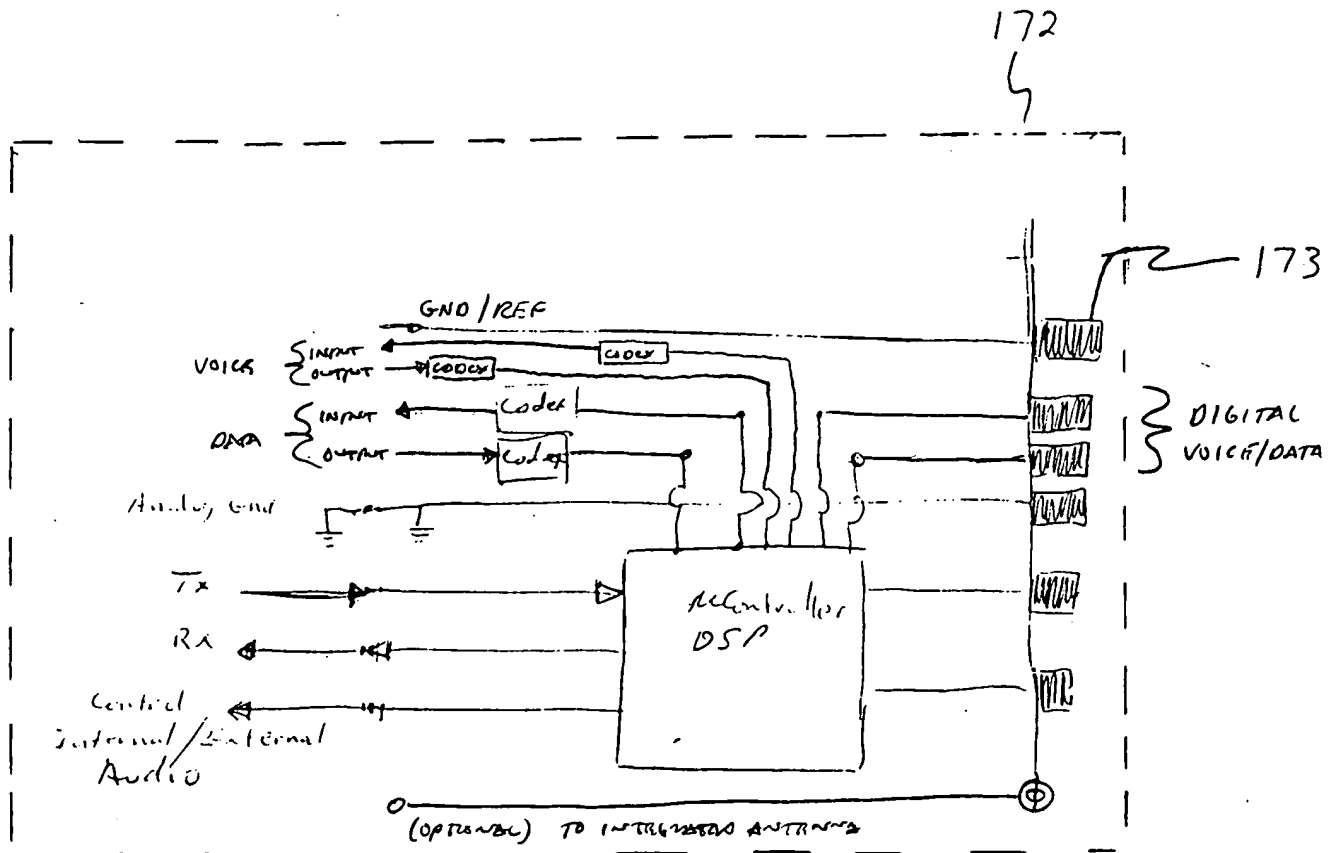 172
173
GND/REF
VOICE
INPUT
OUTPUT
CODEX
CODEX
DATA
INPUT
OUTPUT
Codex
Codex
DIGITAL
VOICE/DATA
Analog Gnd
Tx
Rx
Control
Internal/External
Audio
µController
DSP
(OPTIONAL) TO INTEGRATED ANTENNA